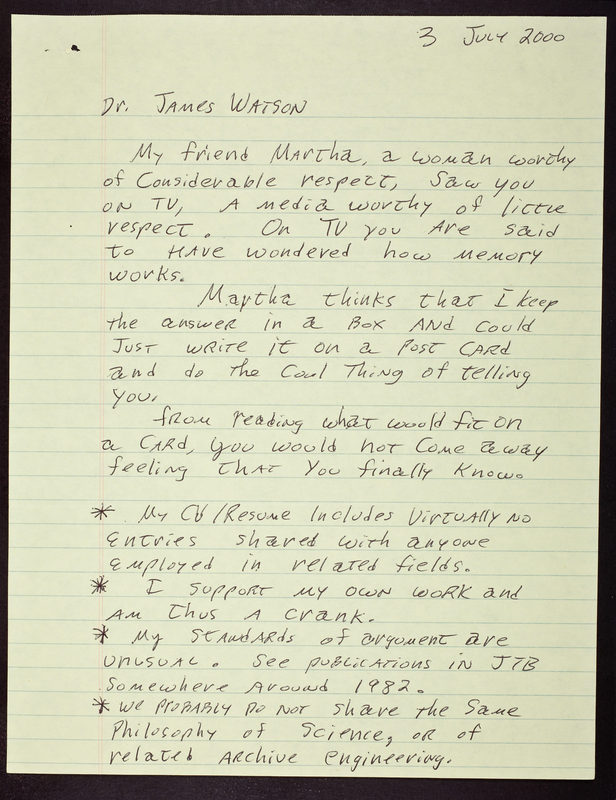 3 July 2000
Dr. James Watson
My friend Martha, a woman worthy
of considerable respect, saw you
on TV, a media worthy of little
respect. On TV you are said
to have wondered how memory
works.
Martha thinks that I keep
the answer in a box and could
just write it on a post card
and do the cool thing of telling
you.
From reading what would fit on
a card, you would not come away
feeling that you finally know.
* My CV/Resume includes virtually no
entries shared with anyone
employed in related fields.
* I support my own work and
am thus a crank.
* My standards of argument are
unusual. See publications in JTB
somewhere around 1982.
* We probably do not share the same
philosophy of science, or of
related archive engineering.